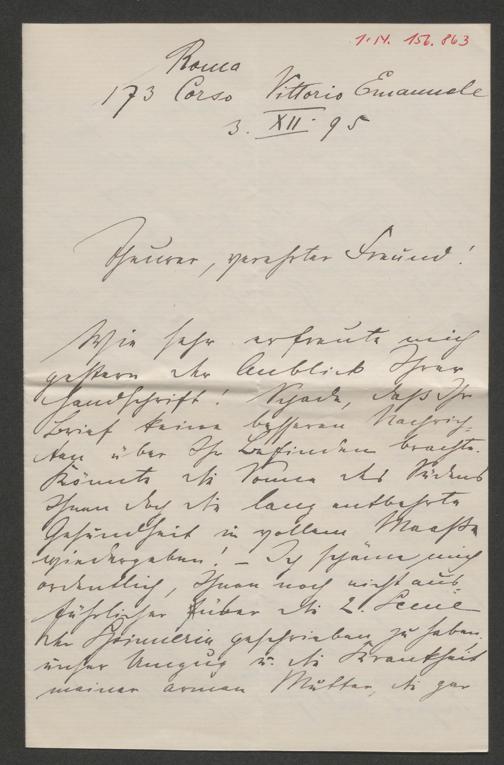 I.N. 156.863
Roma
173 Corso Vittorio Emanuele
3. XII. 95
Theurer, verehrter Freund!
Wie sehr erfreute mich
gestern der Anblick Ihrer
Handschrift! Schade, daß Ihr
Brief keine besseren Nachrich-
ten über Ihr Befinden brachte.
Könnte die Sonne des Südens
Ihnen doch die lang entbehrte
Gesundheit in vollem Maaße
wiedergeben! – Ich schäme mich
ordentlich, Ihnen noch nicht aus-
führlicher über die 2. Scene
der geschrieben zu haben,
unser Umzug u. die Krankheit
meiner armen Mutter, die gar